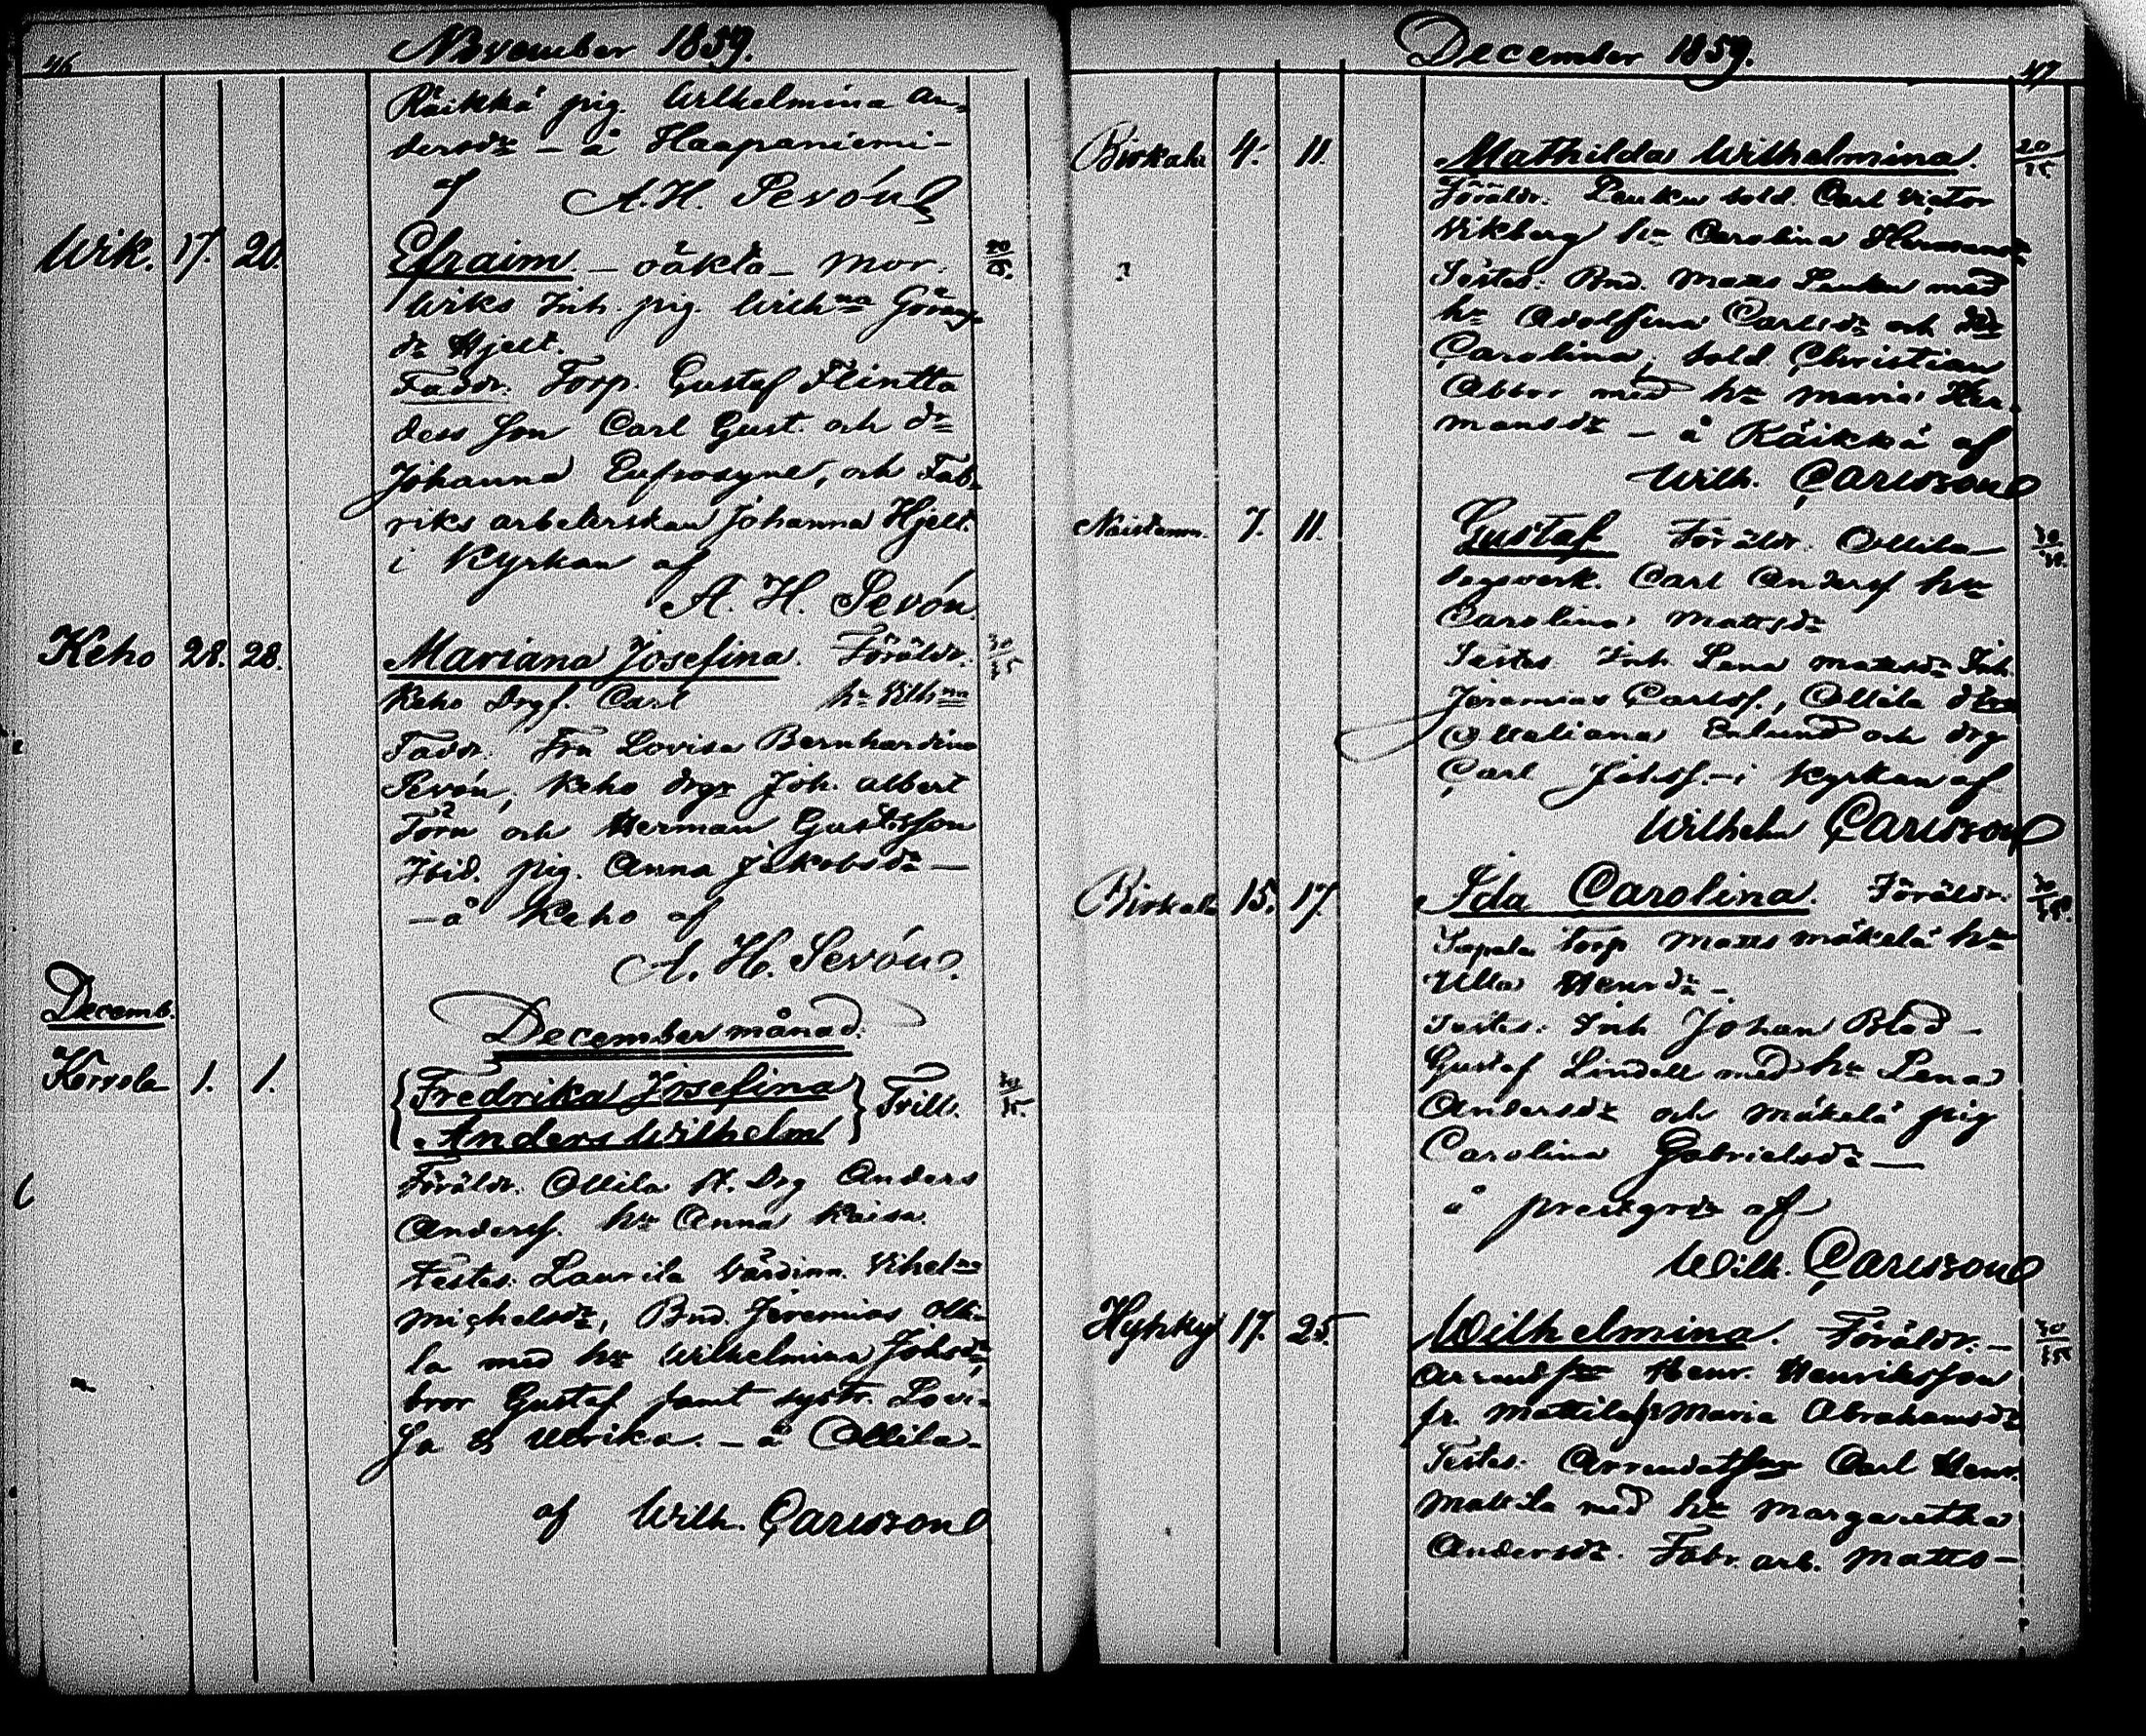 46
November 1859.
Räikkä pig. Wilhelmina An-
dersdr – å Haapaniemi –
af A. H. Sevón
Wik. 17. 20. Efraim – oäkta – Mor.
Wiks Inh. pig. Wilhna
dr Hjelt.
Faddr. Torp. Gustaf Flintta
dess Son Carl Gust. och dr
Johanna Eufrosyne, och Fab-
riks arbeterskan Johanna Hjelt.
i Kyrkan af
A. H. Sevón
Keho 28. 28. Mariana Josefina. Föräldr.
Keho Drgf. Carl hr Vilhna
Faddr. Fru Lovisa Bernhardina
Sevón, Keho drgr Joh. Albert
Törn och Herman Gustafsson
Ibid. pig. Anna Jakobsdr –
– å Keho af
A. H. Sevón.
Decemb.
December månad.
Korvola 1. 1. {Fredrika Josefina
Anders Wilhelm} Trill.
Föräldr. Ollila Drg Anders
Andersf. hr Anna Kaisa.
Testes: Laurila Värdinn. Vihelna
Michelsdr, Bnd. Jeremias Olli-
la med hr Wilhelmina Johsdr,
bror Gustaf samt systr. Lovi-
sa & Ulrika. – å Ollila –
af Wilh. Carlsson
December 1859.
47
Birkala 4. 11. Mathilda Wilhelmina. 20/25
Föräldr. Sold. Carl Victor
Vikberg hr Carolina
Testes: Bnd. Matts med
hr Adolfina Carlsdr och
Carolina, Sold Christian
Abbor med hr Maria Her-
mansdr – å Räikkä af
Wilh. Carlsson
7. 11. Gustaf Föräldr. Ollila
dagsverk. Carl Andersf hr
Carolina Mattsdr
Testes Inh. Lena Mattsdr Inh.
Jeremias Carlsf., Ollila
Enlund och drg
Carl Johsf. – i Kyrkan af
Wilhelm Carlsson
Birkala 15. 17. Ida Carolina. Föräldr.
Torp Matts Mäkelä hr
Ulla Henrdr –
Testes: Inh Johan Blad –
Gustaf Lindell med hr Lena
Andersdr och Mäkelä pig
Carolina Gabrielsdr –
å prestgrdn af
Wilh. Carlsson
Hyhky 17. 25. Wilhelmina. Föräldr. –
Henr. Henriksson
fr. Mattila hr Maria Abrahamsdr
Testes: Carl Henr.
Mattila med hr Margaretha
Andersdr. Fabr. arb. Matts –